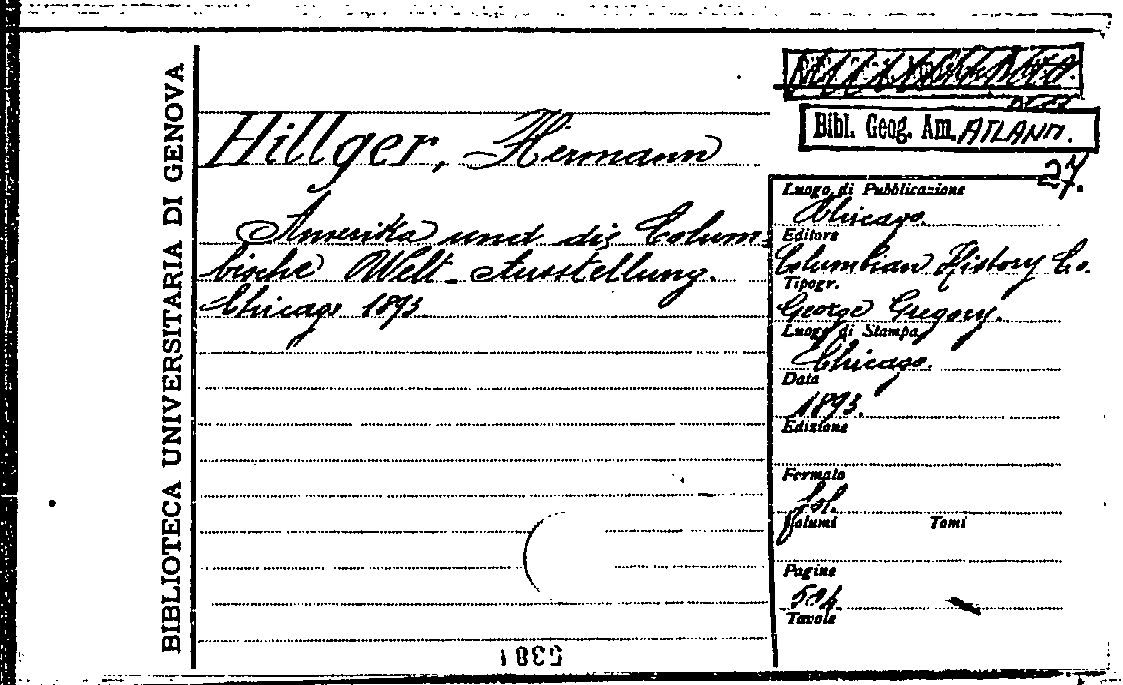 BIBLIOTECA UNIVERSITARIA DI GENOVA
Bibl. Geog. Am. ATLANM.
27.
Hillger, Hermann
Amerika und die Colum-
bische Welt-Ausstellung.
Chicago 1893.
Luogo di Pubblicazione
Chicago.
Editore
Columbian History Co.
Tipogr.
George Gregory.
Luogo di Stampa
Chicago.
Data
1893.
Edizione
Formato
fol.
Volumi Tomi
Pagine
504.
Tavole
5381